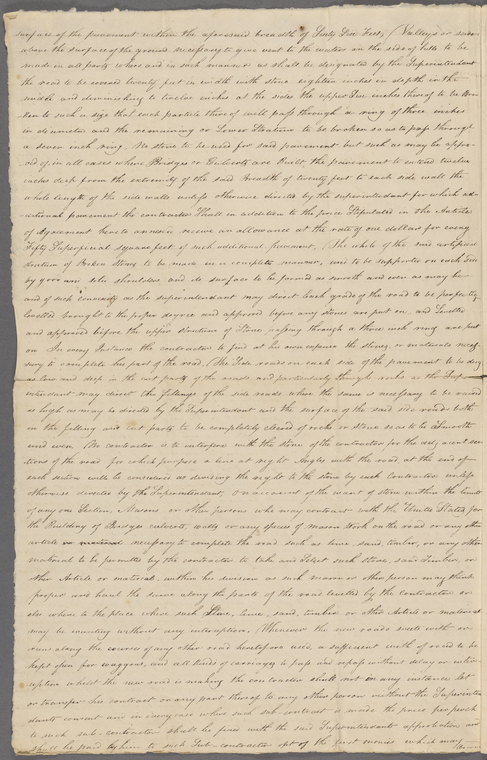 surface of the pavement within the aforesaid breadth of Sixty Six Feet, (Valleys or
above the surface of the ground necessary to give vent to the waters on the side of hills to be
made in all parts where and in such manner as shall be designated by the Superintendent
the road to be covered twenty feet in width with stone eighteen inches in depth in the
middle and diminishing to twelve inches at the sides the upper Six inches thereof to be Bro
ken to such a size that each particle thereof will pass through a ring of three inches
in diameter and the remaining or Lower Stratum to be broken so as to pass through
a seven inch ring. No stone to be used for said pavement but such as may be appro
ed of in all cases where Bridges or Culverts are Built the pavement to extend twelve
inches deep from the extremity of the said Breadth of twenty feet to each side wall the
whole length of the side walls unless otherwise directed by the superintendant for which ad
ditional pavement the contractor Shall in addition to the price Stipulated in the Article
of Agreement hereto annexed receive an allowance at the rate of one dollar for every
Fifty Superficial Square feet of such additional pavement, (The whole of the said artificial
stratum of Broken Stones to be made in a complete manner, and to be supported on each side
by good and solid shoulders and its surface to be formed as smooth and even as may be
and of such convexity as the superintendant may direct Each grade of the road to be perfectly
levelled brought to the proper degree and approved before any stones are put on, and
and approved before the upper stratum of Stone, passing through a three inch ring are put
on In every Instance the contractor to find at his own expence the stones or materials neces
sary to complete his part of the road, (The Side roads on each side of the pavement to be dug
as low and deep in the cut parts of the roads and particularly through rocks as the Super
intendant may direct the fillings of the side roads where the same is necessary to be raised
as high as may be directed by the Superintendant and the surface of the said side roads both
in the filling and cut parts to be completely closed of rocks or Stone so as to be Smooth
and even. No contractor is to interfere with the stone of the contractor for the adjacent sec
tions of the road for which purpose a line at right Angles with the road at the end of
each section will be considered as dividing the right to the stone by each Contractor unless
otherwise directed by the Superintendent, on account of the want of stone within the limits
of any one Section, Masons or other persons who may contract with the United States for
the Building of Bridges culverts, walls or any species of mason Work on the road or any other
article or material necessary to complete the road such as lime sand, timber, or any other
material to be permitted by the contractor to take and Select such stone, sand Timber, or
other Article or material, within his division as such mason or other person may think
proper and haul the same along the parts of the road levelled by the contractor or
else where to the place where such Stone, lime, sand, timber or other Article or material
may be wanting without any interruption, (Whenever the new roads meets with or
runs along the course of any other road heretofore used a sufficient width of road to be
kept open for waggons, and all kinds of carriages to pass and repass without delay or inter
uption whilst the new road is making the contractor shall not in any instance let
or transfer his contract or any part thereof to any other person without the Superinten
dants consent and in every case where such sub-contract is made the price per perch
to such sub-contractor shall be fixed with the said Superintendants approbation and
shall be paid by him to such Sub-contractor out of the first monies which may